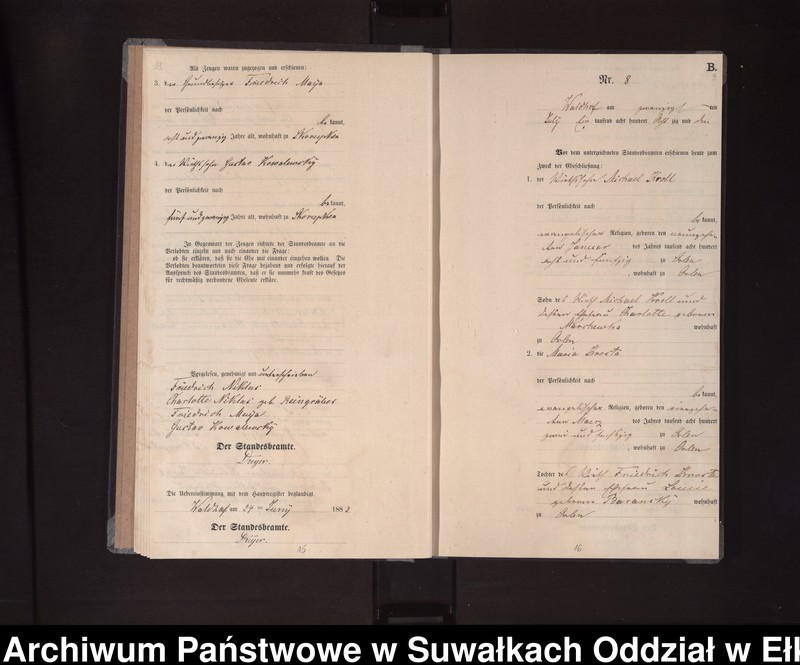 Als Zeugen waren zugezogen und erschienen:
3. der Grundbesitzer Friedrich Maija
der Persönlichkeit nach
be kannt,
acht und zwanzig Jahre alt, wohnhaft zu Skomentnen
4. der Wirthssohn Gustav Kowalewsky
der Persönlichkeit nach
be kannt,
fünf und zwanzig Jahre alt, wohnhaft zu
In Gegenwart der Zeugen richtete der Standesbeamte an die
Verlobten einzeln und nach einander die Frage:
ob sie erklären, daß sie die Ehe mit einander eingehen wollen. Die
Verlobten beantworteten diese Frage bejahend und erfolgte hierauf der
Ausspruch des Standesbeamten, daß er sie nunmehr kraft des Gesetzes
für rechtmäßig verbundene Eheleute erkläre.
Vorgelesen, genehmigt und unterschrieben
Friedrich Niklas
Charlotte Niklas geb Reingräber
Friedrich Maija
Gustav Kowalewsky
Der Standesbeamte.
Die Uebereinstimmung mit dem Hauptregister beglaubigt.
Waldhof am 24 ten Juny 1882
Der Standesbeamte.
15
B.
Nr. 8
Waldhof am zwanzigsten
July Ein tausend acht hundert Acht zig und
Vor dem unterzeichneten Standesbeamten erschienen heute zum
Zweck der Eheschließung:
1. der Wirthssohn Michael Kroll
der Persönlichkeit nach
be kannt,
evangelischer Religion, geboren den neunzehn
ten Januar des Jahres tausend acht hundert
acht und fünfzig zu Orlen
, wohnhaft zu Orlen
Sohn des Wirth Michael Kroll und
dessen Ehefrau Charlotte geboren
wohnhaft
zu Orlen
2. die Maria Krosta
der Persönlichkeit nach
be kannt,
evangelischer Religion, geboren den
ten Maerz des Jahres tausend acht hundert
zwei und sechzig zu Orlen
, wohnhaft zu Orlen
Tochter des Wirth Friedrich Krosta
und dessen Ehefrau Louise
geborene Baransky wohnhaft
zu Orlen
16
Archiwum Państwowe w Suwałkach Oddział w Ełk